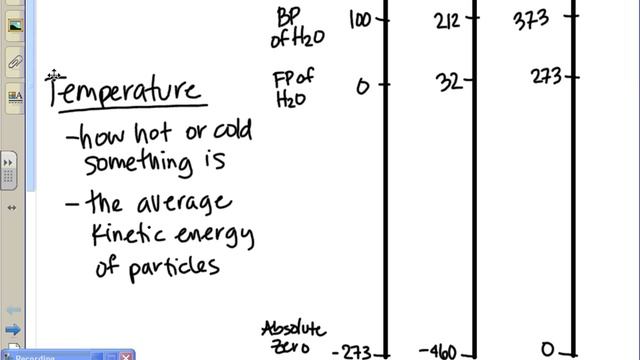 BP
of H2O
100
212
373
Temperature
FP of
H2O
0
32
273
-how hot or cold
something is
- the average
kinetic energy
of particles
Absolute
Zero
-273
-460
0
Recording